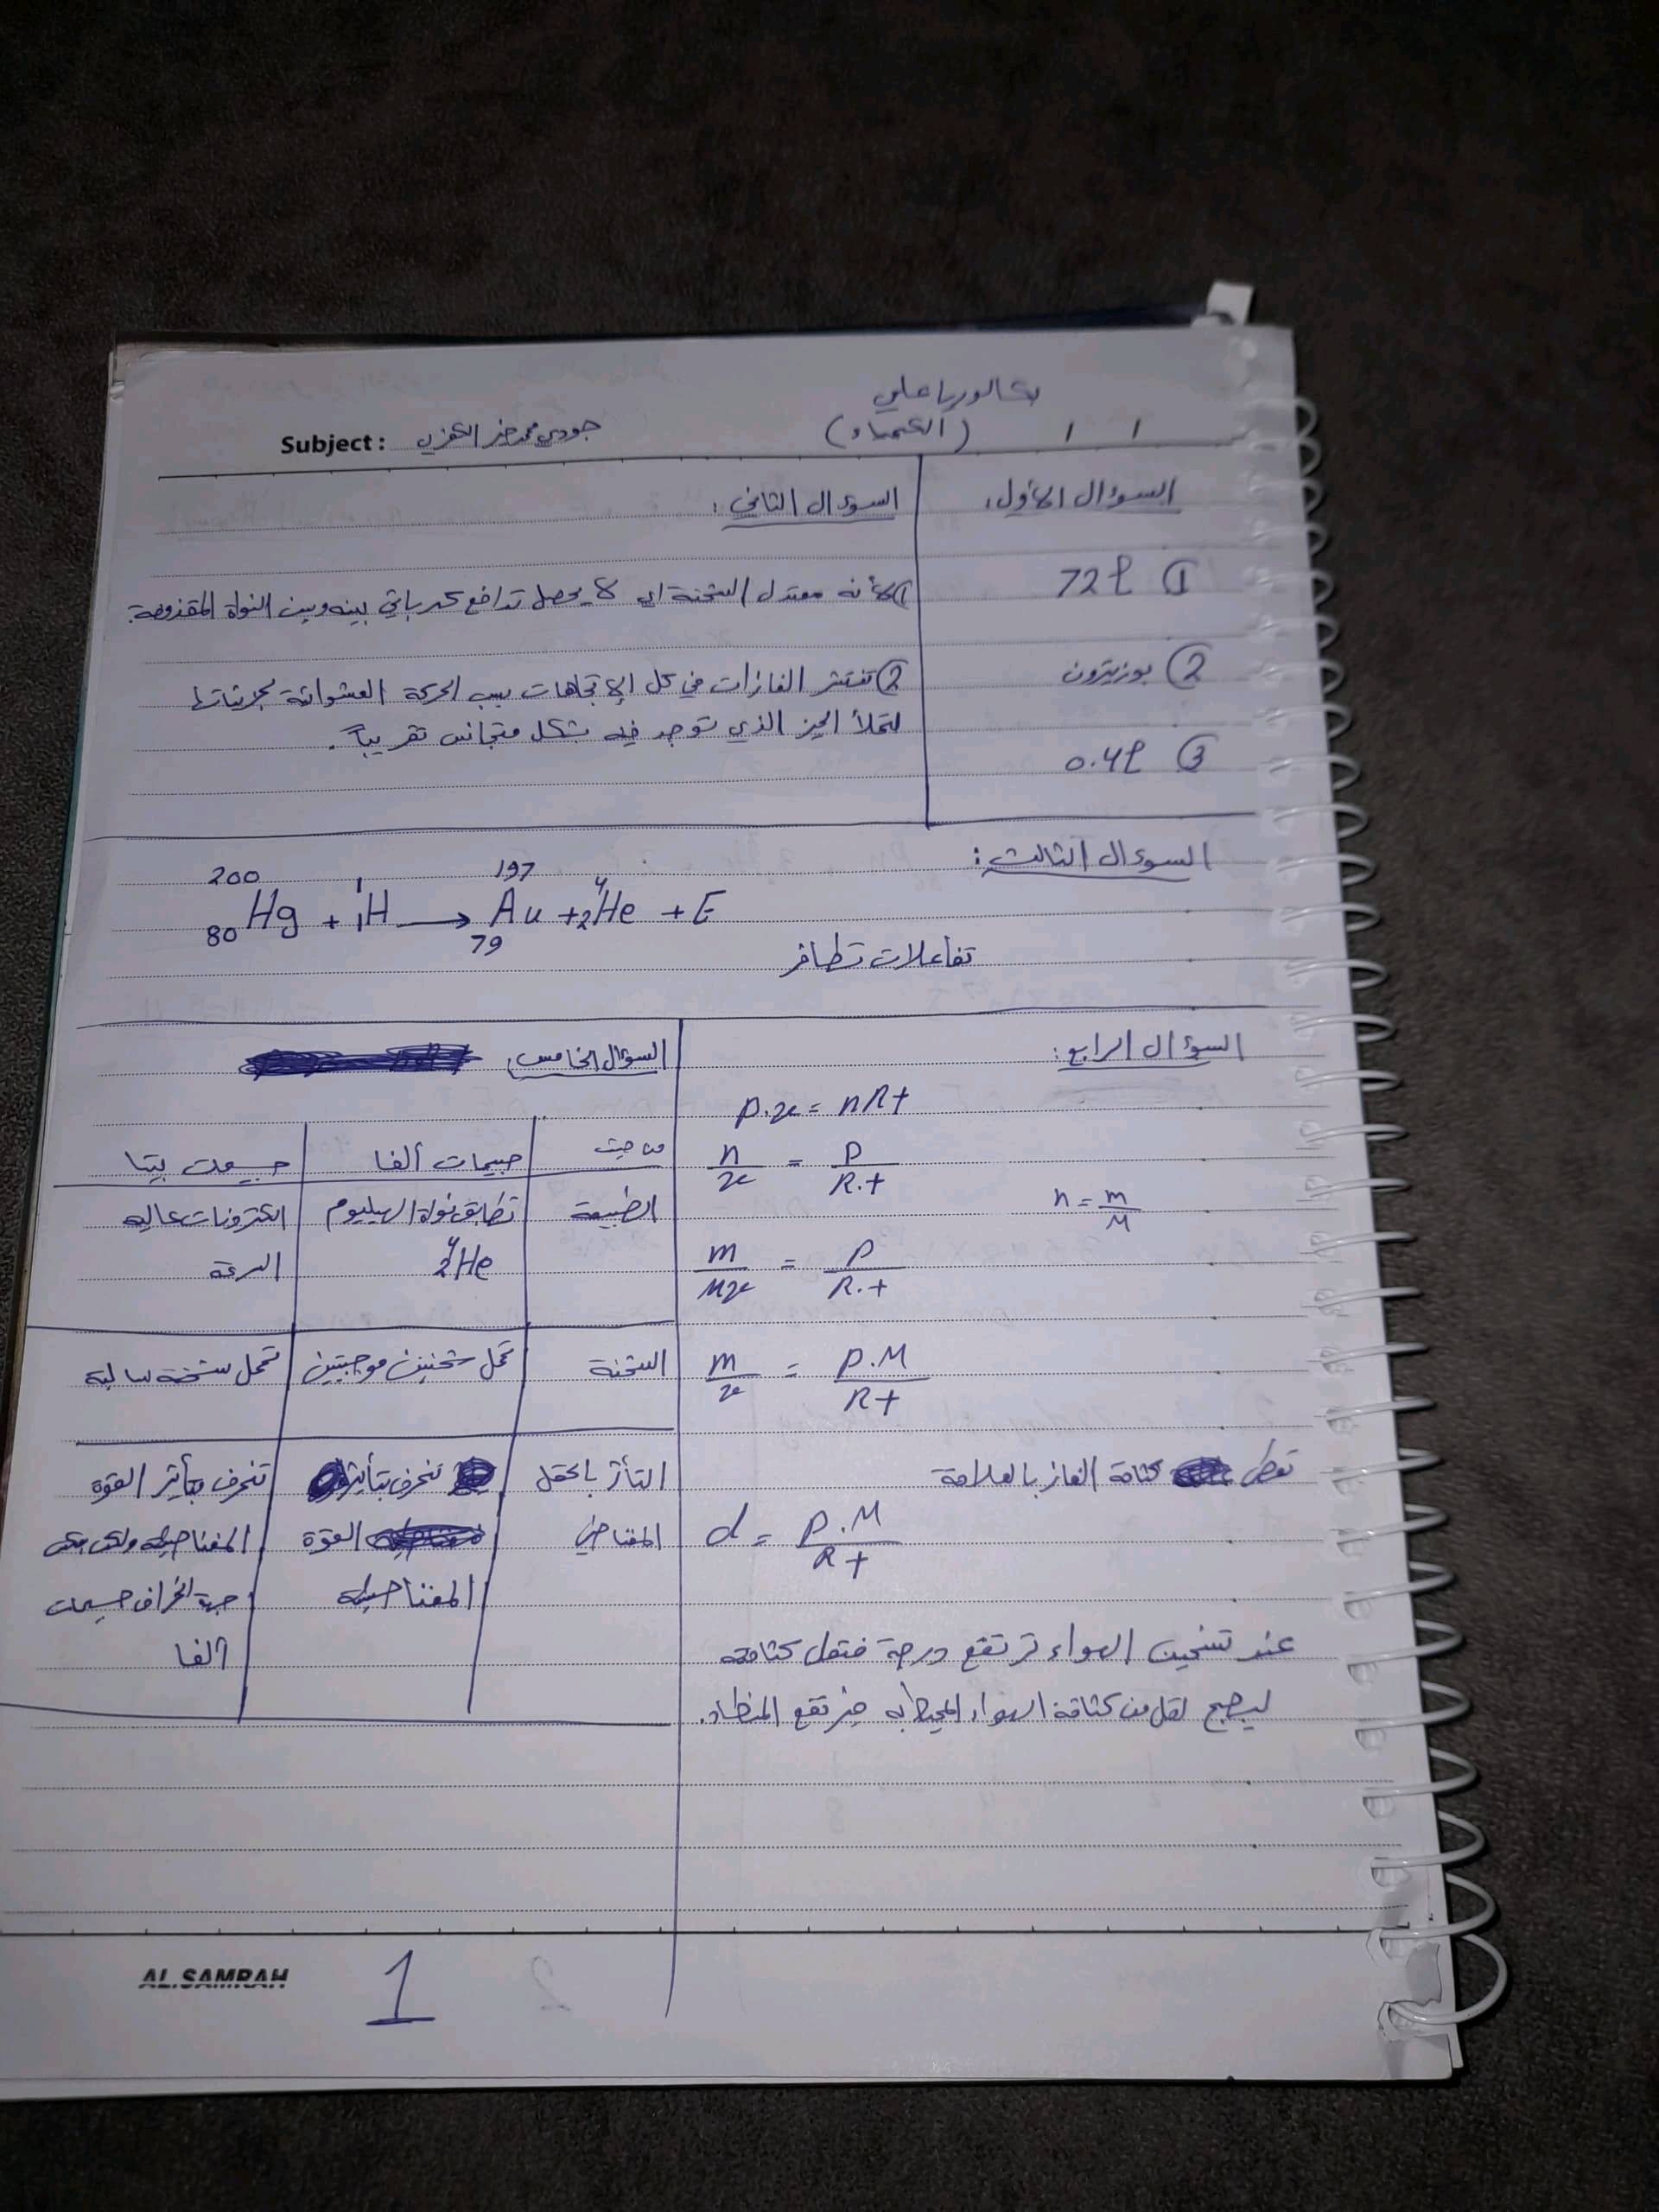 بكالوريا علمي
(الكيمياء)
/ /
Subject: جودي محمد خير
السؤال الأول:
① 72 ℓ
② بوزيترون
③ 0.4 ℓ
السؤال الثاني:
① لأنه معتدل الشحنة اي لا يحصل تدافع كهربائي بينه وبين النواة المقذوفة.
② تنتشر الغازات في كل الإتجاهات بسبب الحركة العشوائية لجزيئاتها
لتملأ الحيز الذي توجد فيه بشكل متجانس تقريباً.
السؤال الثالث:
²⁰⁰₈₀Hg + ¹₁H → ¹⁹⁷₇₉Au + ⁴₂He + E
تفاعلات تطافر
السؤال الرابع:
P.v = nRt
n/v = P/R.t
n = m/M
m/Mv = P/R.t
m/v = P.M/Rt
تعطى كثافة الغاز بالعلاقة
d = P.M/Rt
عند تسخين الهواء ترتفع درجة فتقل كثافته
ليصبح اقل من كثافة الهواء المحيط به فيرتفع المنطاد.
السؤال الخامس:
من حيث
جسيمات ألفا
جسيمات بيتا
الطبيعة
تطابق نواة الهيليوم
⁴₂He
الكترونات عالية
السرعة
الشحنة
تحمل شحنتين موجبتين
تحمل شحنة سالبة
التأثر بالحقل
المغناطي
تنحرف بتأثير
القوة
المغناطيسية
تنحرف بتأثير القوة
المغناطيسية ولكن بعكس
جهة انحراف جسيمات
ألفا
AL.SAMRAH
1
2